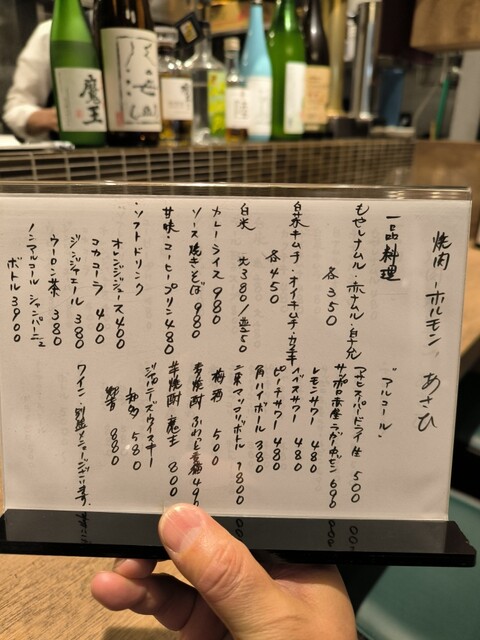 焼肉ホルモン、あさひ
一品料理
もやしナムル・赤ナムル・白ナムル
各350
白菜キムチ・オイキムチ・カクテキ
各450
白米 大380/並50
カレーライス 980
ソース焼きそば 980
甘味・コーヒープリン 480
・ソフトドリンク
オレンジジュース 400
コカコーラ 400
ジンジャエール 380
ウーロン茶 380
ノンアルコール シャンパーニュ
ボトル 3900
アルコール・
アサヒスーパードライ 生 500
サッポロ赤星ラガービン 690
レモンサワー 480
480
ピーチサワー 480
角ハイボール 380
二東マッコリボトル 1800
梅酒 500
芋焼酎 魔王 800
ジャパニーズウイスキー
知多 580
響 880
ワイン、別紙メニューございます。
魔王